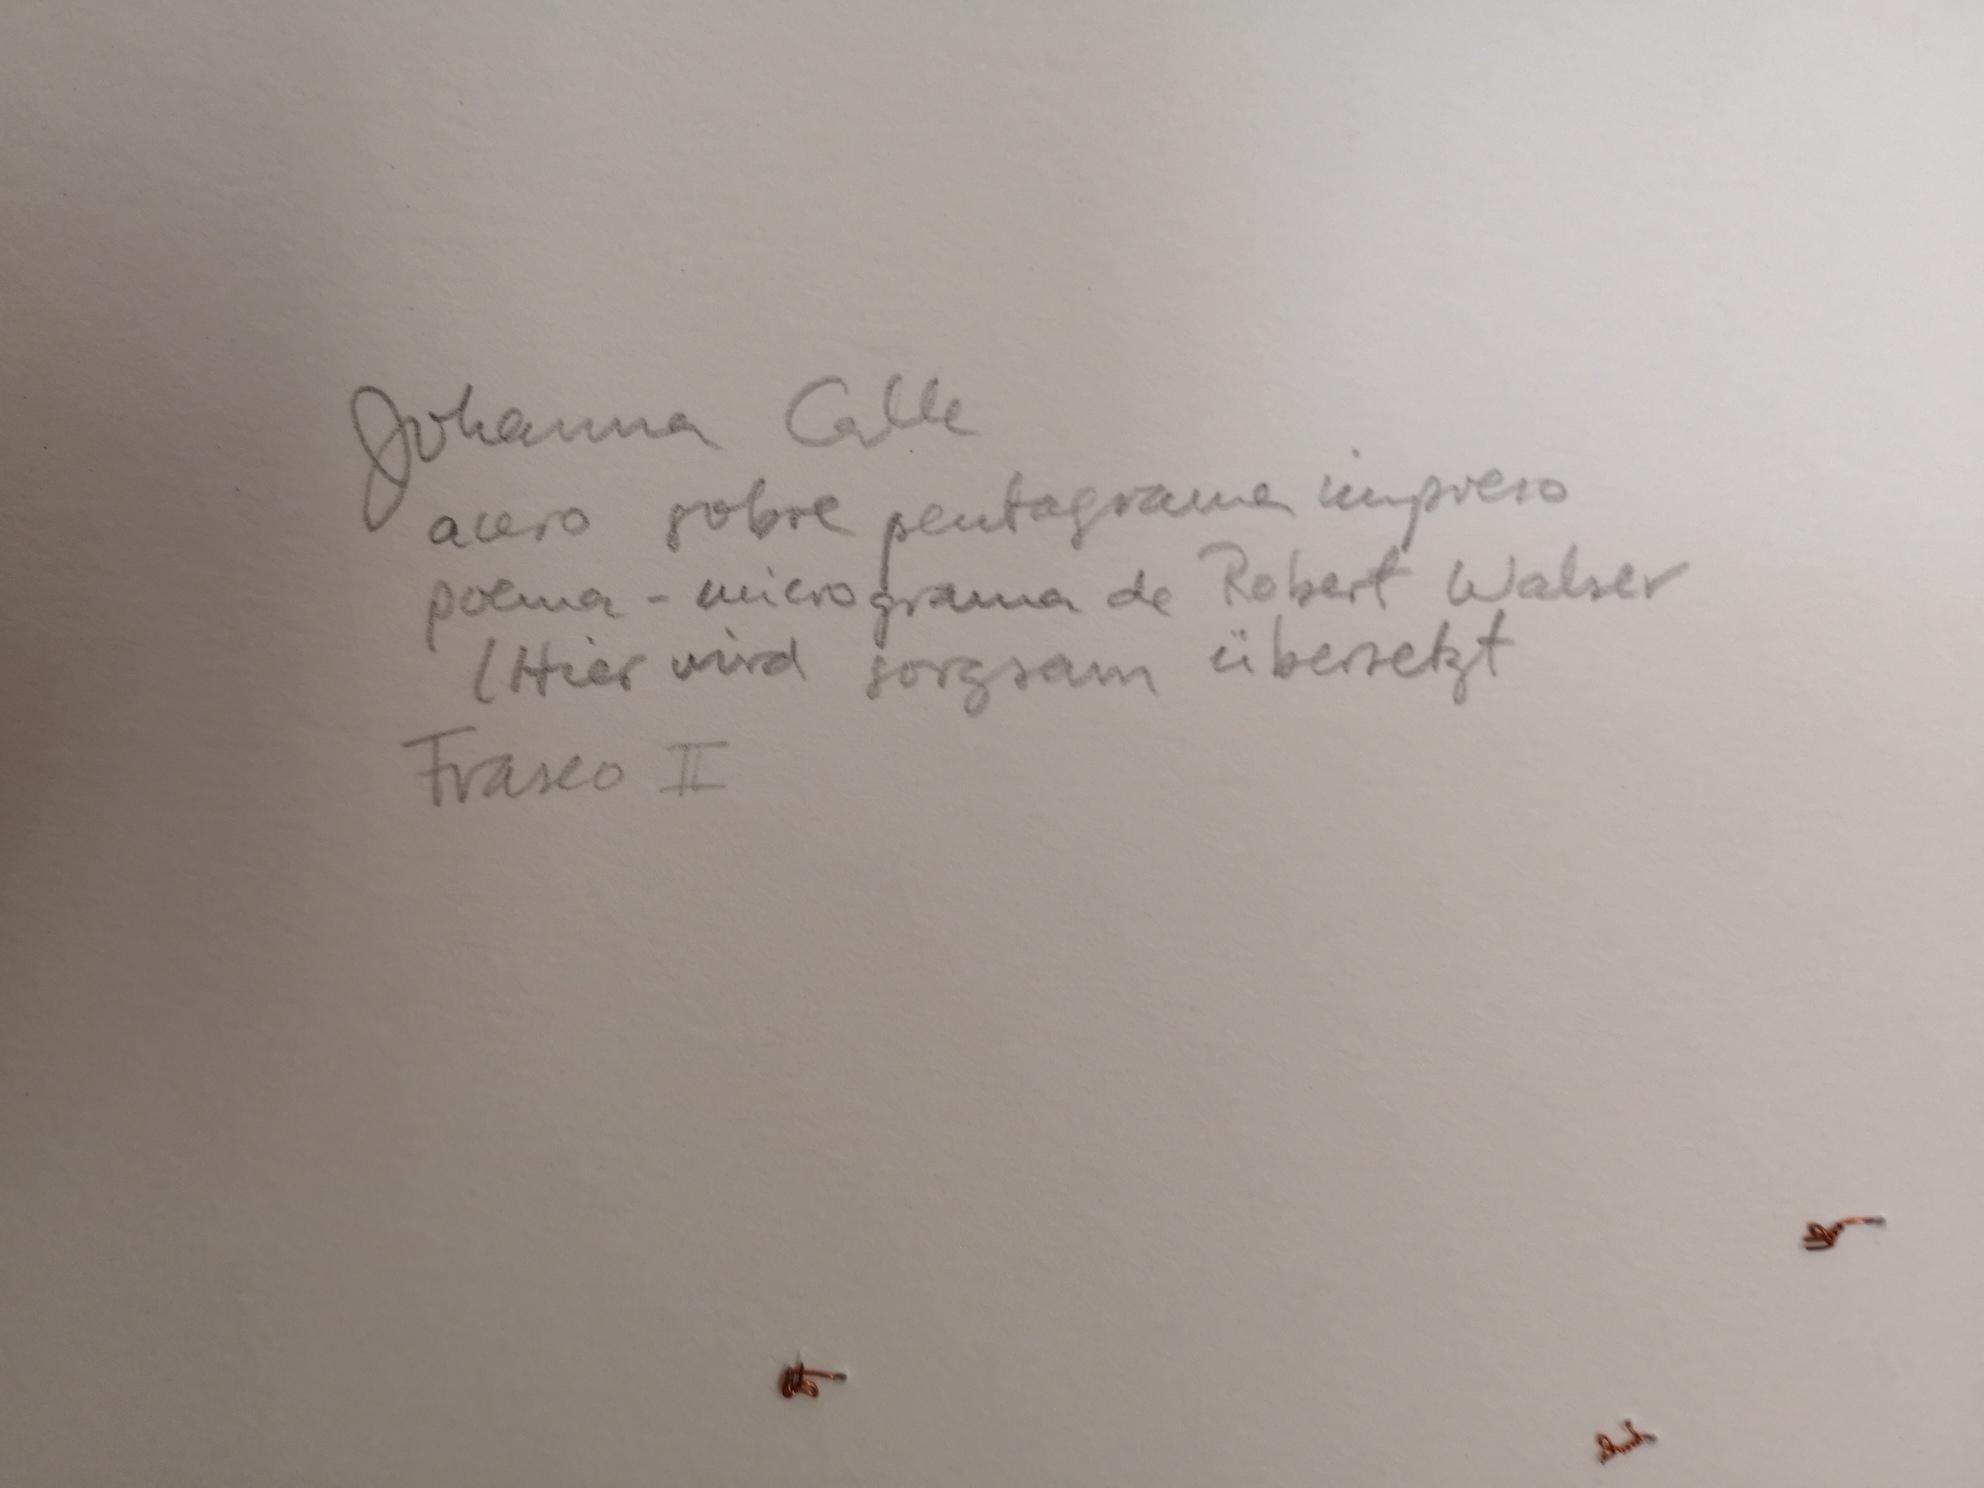 Johanna Calle
acero sobre pentagrama impreso
poema - micrograma de Robert Walser
(Hier wird sorgsam übersetzt
Fraseo II